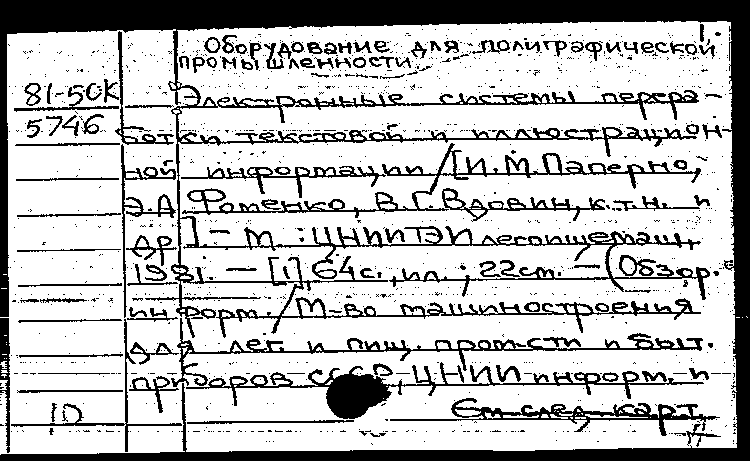 1.
Оборудование для полиграфической
промышленности
81-50К Электронные системы перера-
5746 ботки текстовой и иллюстрацион-
ной информации / [И.М. Паперно,
Э.А. Фоменко, В.Г. Вдовин, к.т.н. и
др.] - М. : ЦНИИТЭИлегпищемаш,
1981. - [1], 64 с., ил. ; 22 cm. - (Обзор.
информ. / М-во машиностроения
для лег. и пищ. пром-сти и быт.
приборов СССР, ЦНИИ информ. и
10 См. след. карт.